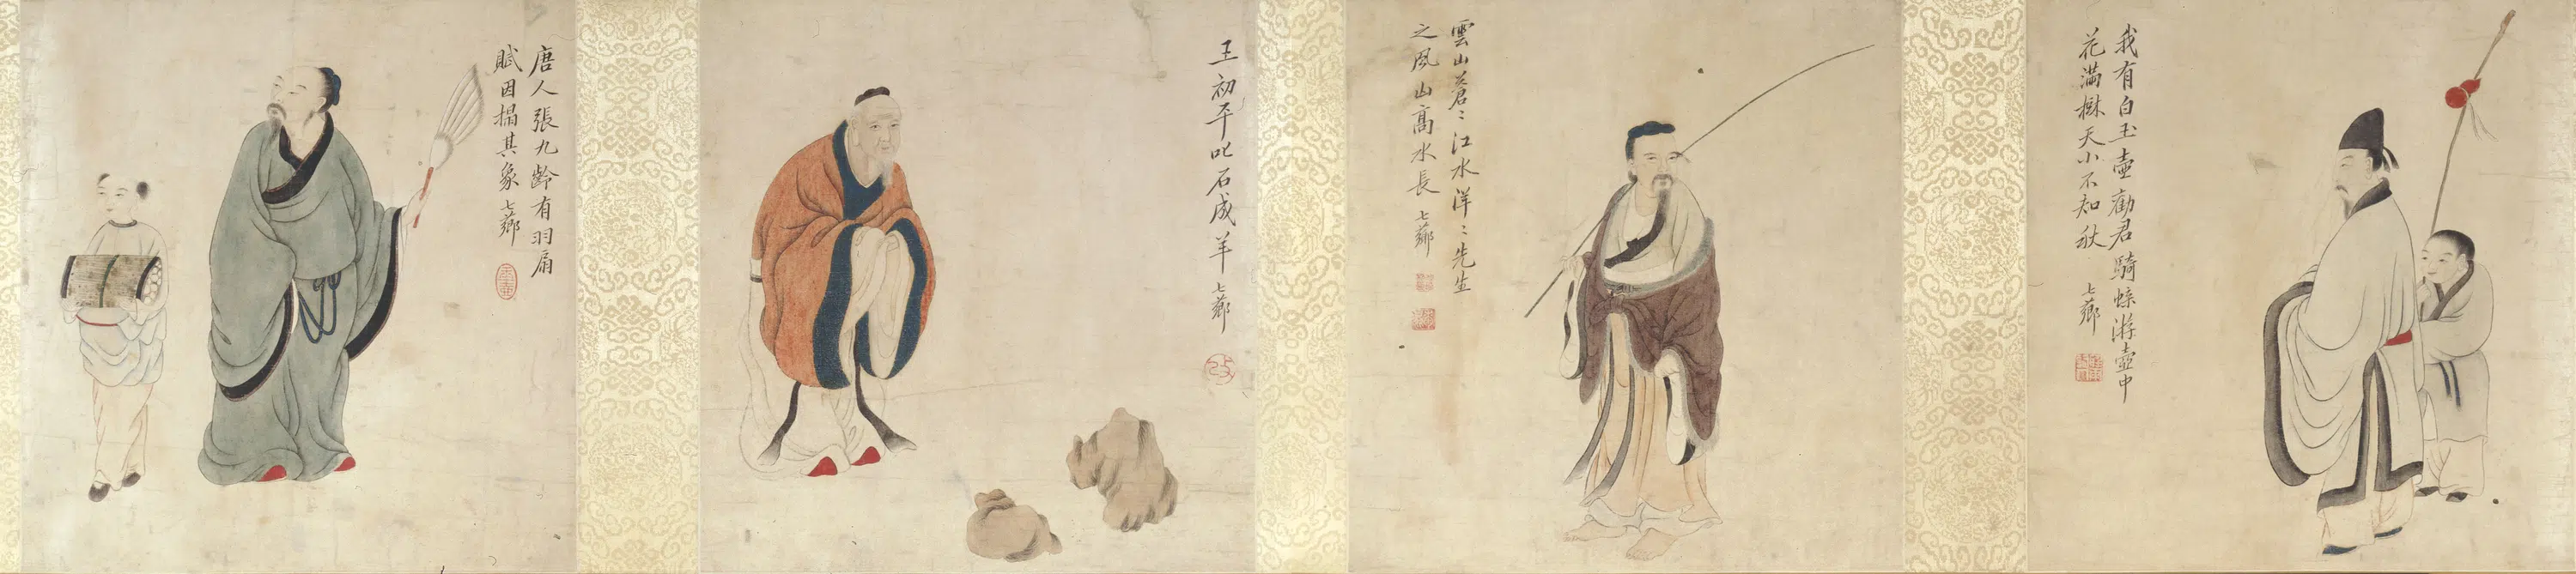 我有白玉壺勸君騎蜍游壺中
花滿樹天小不知秋 七薌
雲山蒼〻江水洋〻先生
之風山高水長 七薌
王初平叱石成羊 七薌
改
唐人張九齡有羽扇
賦因搨其象 七薌